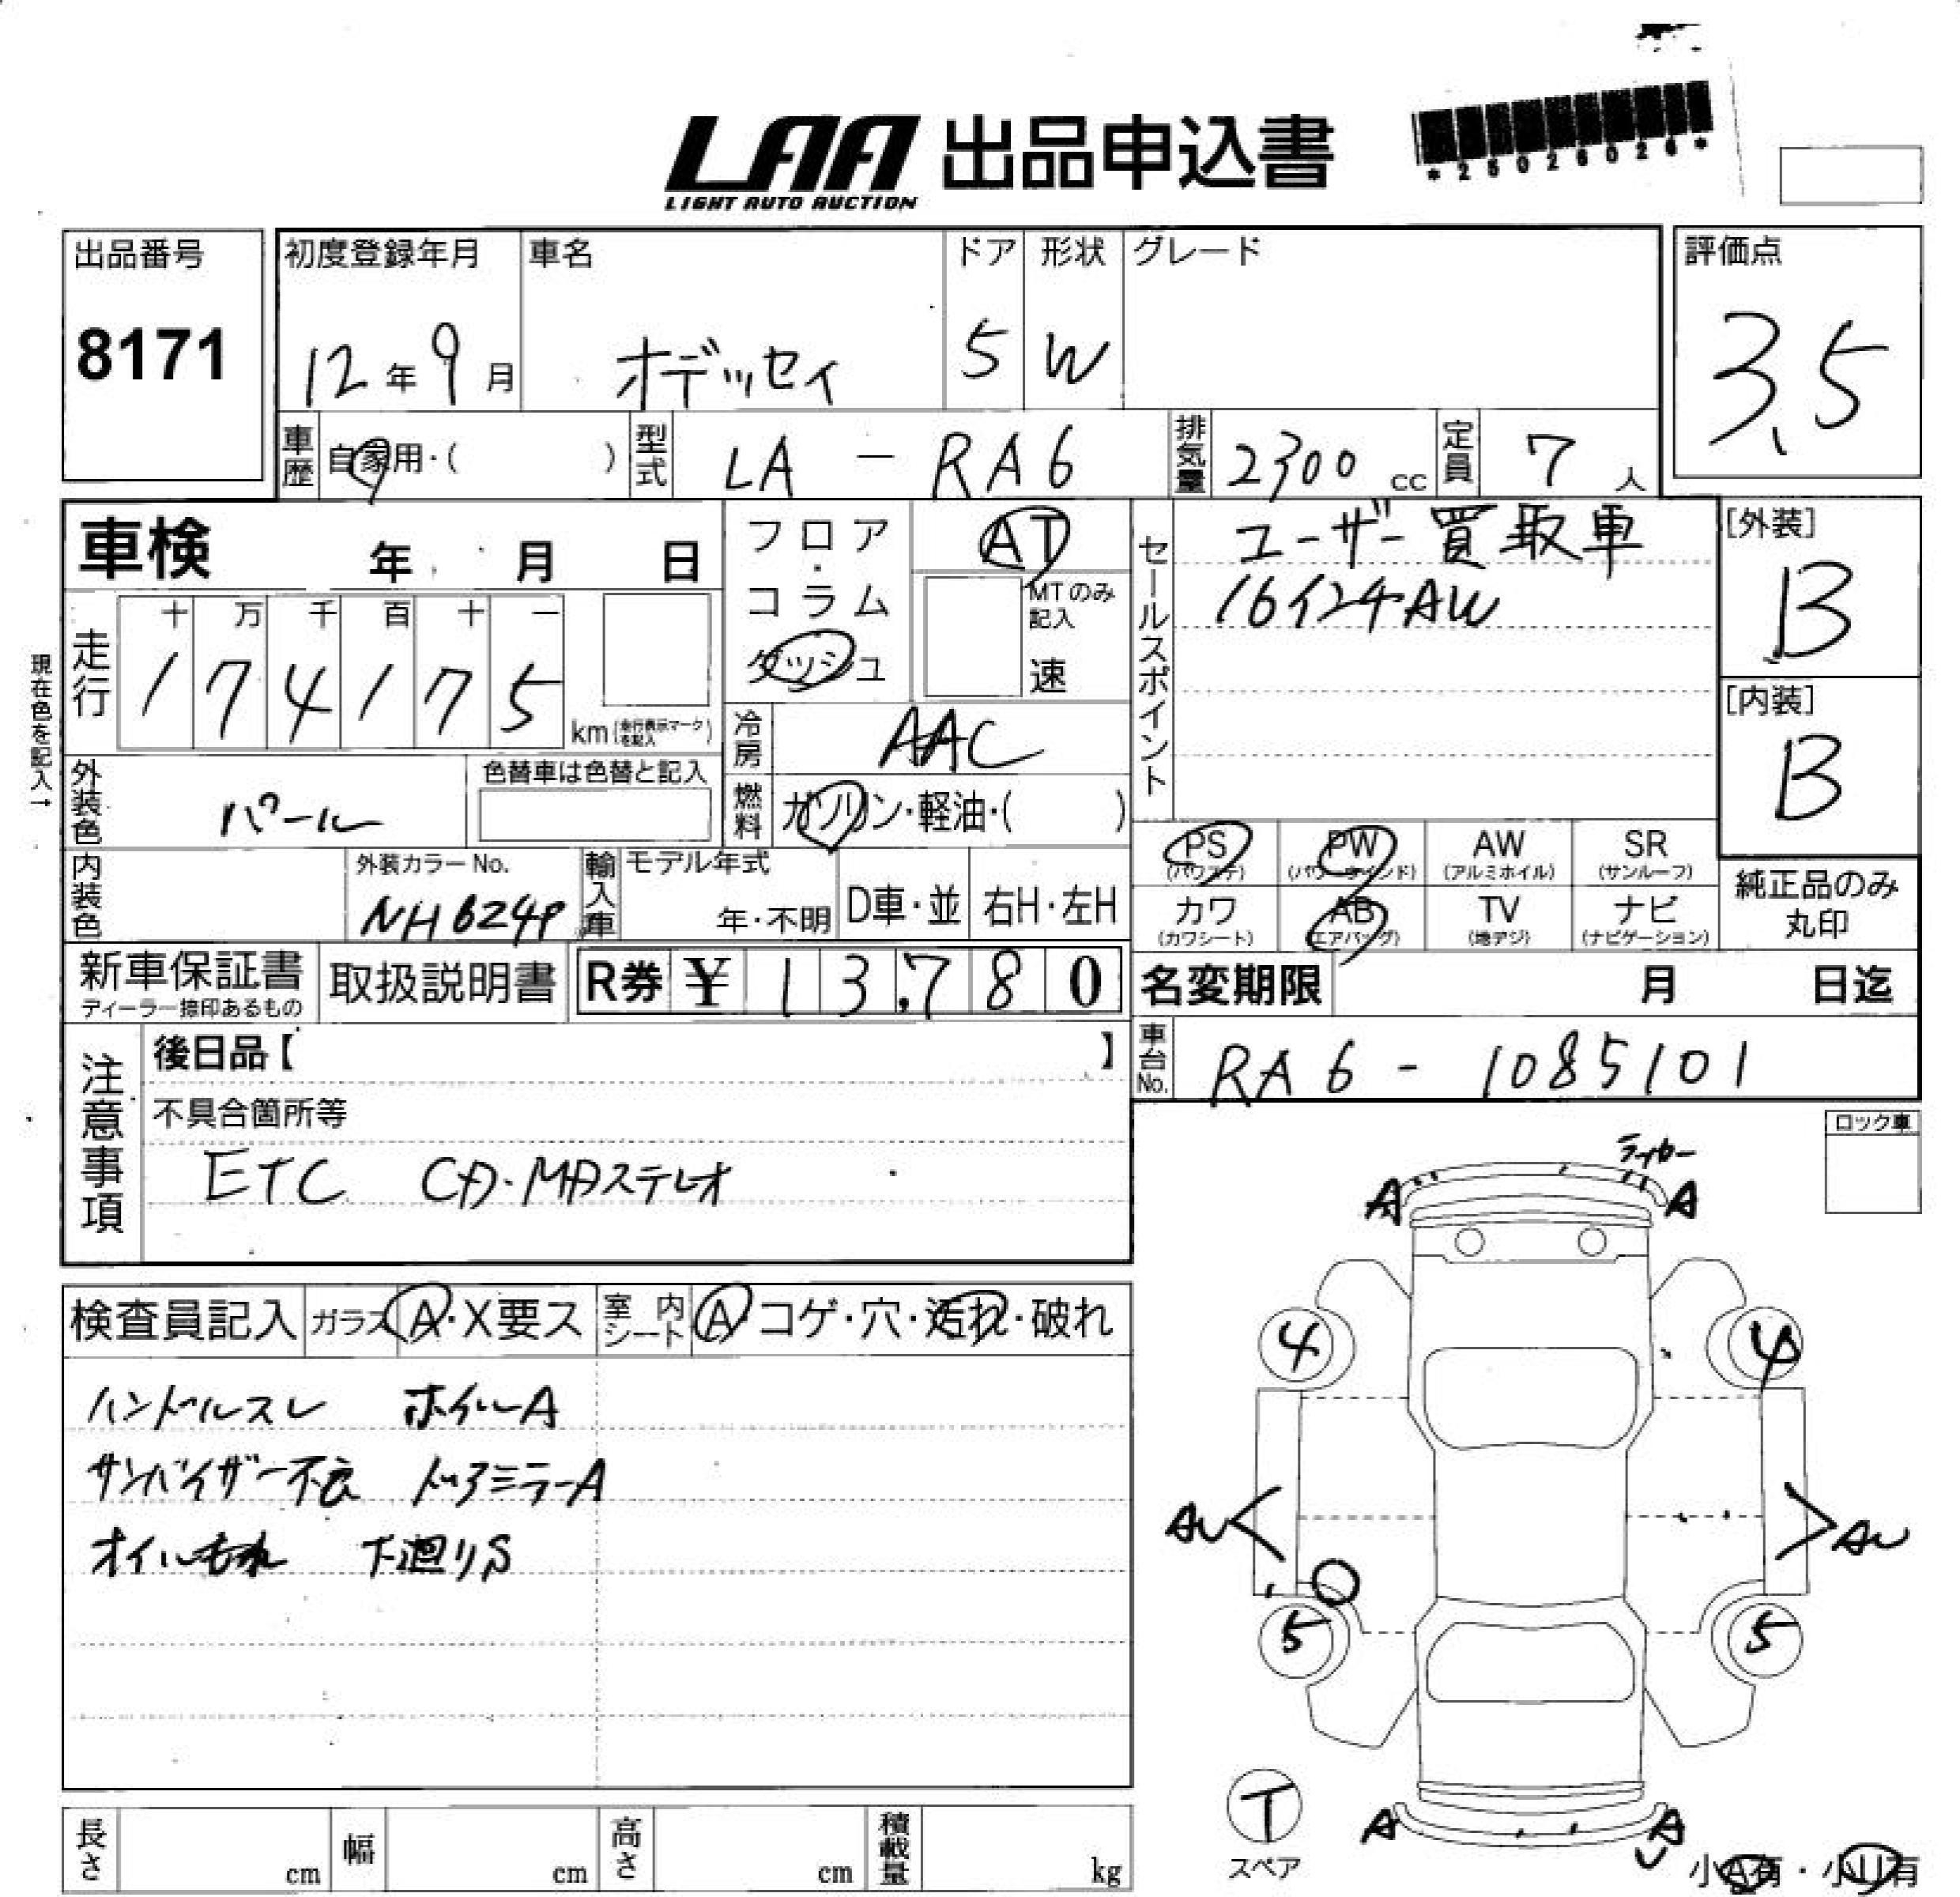 LAA 出品申込書
LIGHT AUTO AUCTION
*25026026*
出品番号
8171
初度登録年月
12年9月
車名
オデッセイ
ドア
5
形状
W
グレード
評価点
3.5
車歴
自家用・( )
型式
LA - RA6
排気量
2300 cc
定員
7 人
車検 年 月 日
フロア・コラム
ダッシュ
AT
MTのみ記入
速
セールスポイント
ユーザー買取車
16インチAW
[外装]
B
[内装]
B
現在色を記入→
走行
十 万 千 百 十 一
1 7 4 1 7 5
km (走行表示マークを記入)
冷房
AAC
外装色
パール
色替車は色替と記入
燃料
ガソリン・軽油・( )
内装色
外装カラーNo.
NH624P
輸入車
モデル年式
年・不明
D車・並
右H・左H
PS
(パワステ)
PW
(パワーウインド)
AW
(アルミホイル)
SR
(サンルーフ)
カワ
(カワシート)
AB
(エアバッグ)
TV
(地デジ)
ナビ
(ナビゲーション)
純正品のみ
丸印
新車保証書
ディーラー捺印あるもの
取扱説明書
R券 ¥ 13,780
名変期限 月 日迄
注意事項
後日品【 】
不具合箇所等
ETC CD・MDステレオ
車台No.
RA6 - 1085101
ロック車
検査員記入
ガラス
A・X要ス
室内シート
A コゲ・穴・汚れ・破れ
ハンドルスレ ホイルA
サンバイザー不良 ドアミラーA
オイルもれ 下廻りS
ライカー
A A
4 4
AU AU
5 5
T
スペア
A A
U
小A有・小U有
長さ cm
幅 cm
高さ cm
積載量 kg